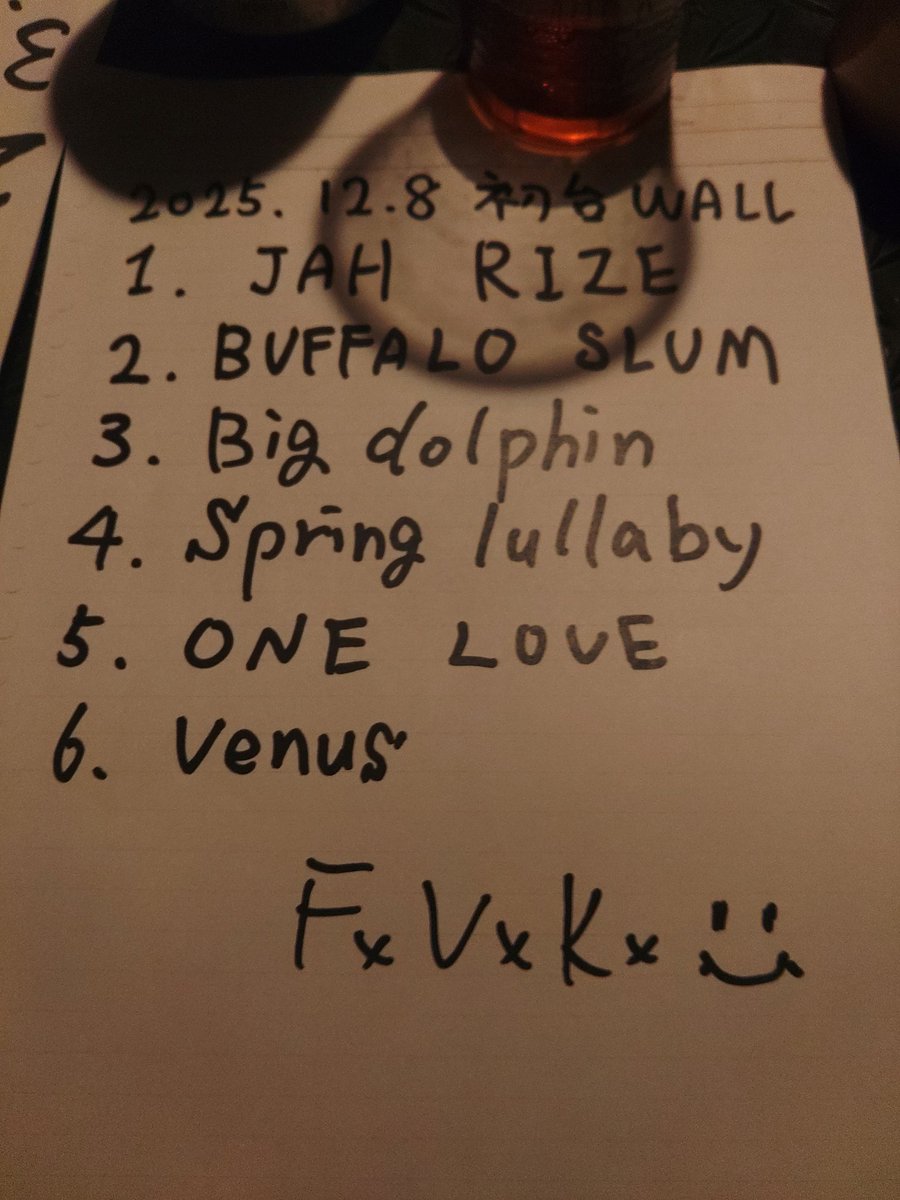 2025. 12.8 初台 WALL
1. JAH RIZE
2. BUFFALO SLUM
3. Big dolphin
4. Spring lullaby
5. ONE LOVE
6. Venus
FxVxKx